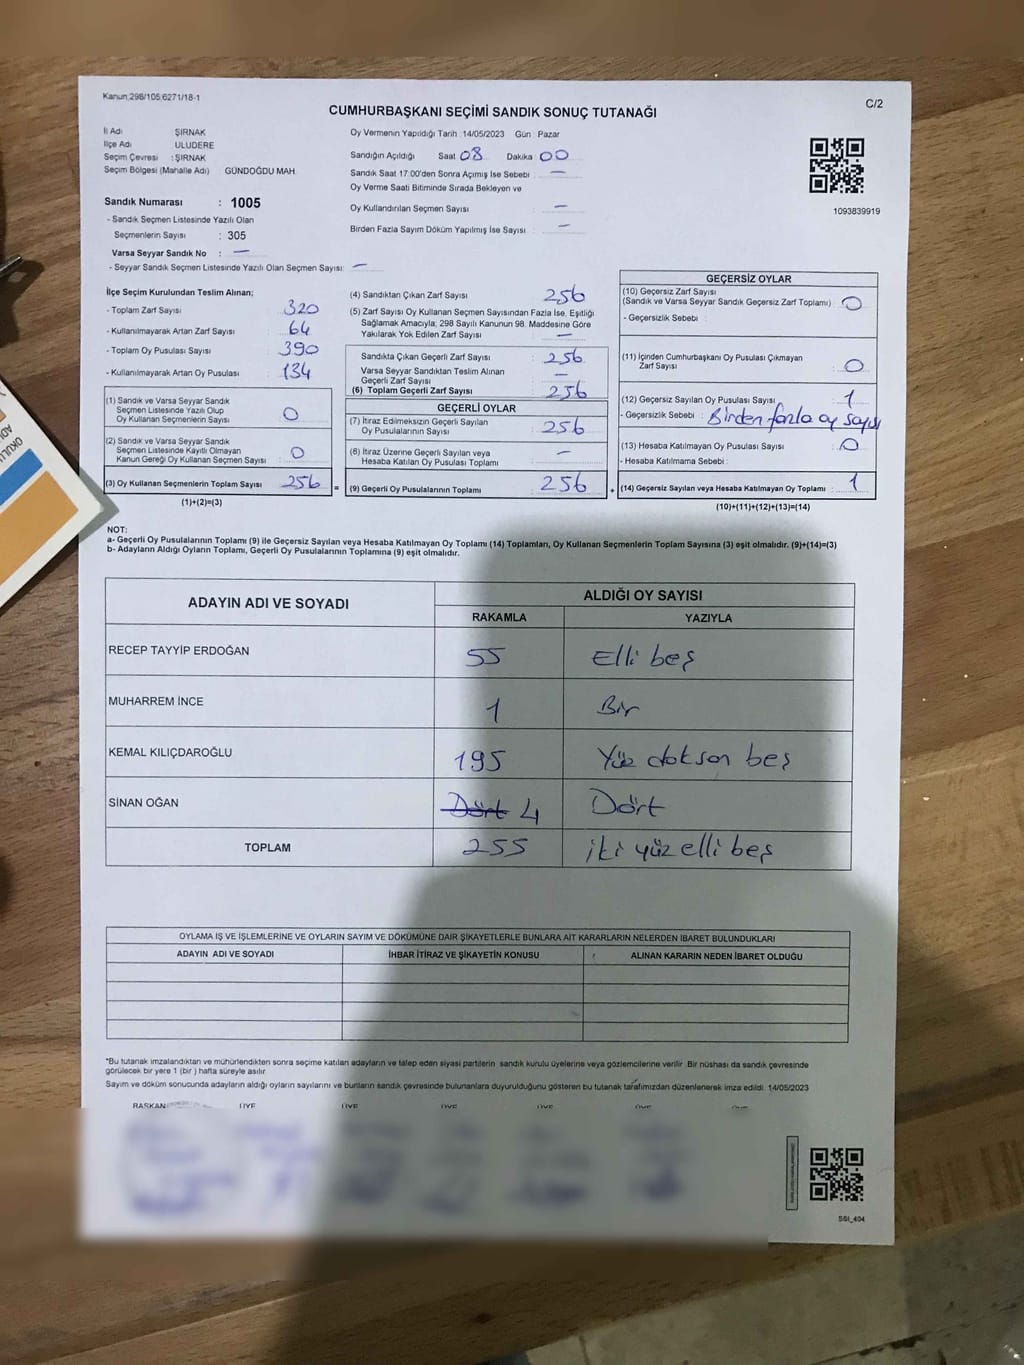 Kanun;298/105;6271/18-1
C/2
CUMHURBAŞKANI SEÇİMİ SANDIK SONUÇ TUTANAĞI
İl Adı ŞIRNAK
İlçe Adı ULUDERE
Seçim Çevresi : ŞIRNAK
Seçim Bölgesi (Mahalle Adı) GÜNDOĞDU MAH.
Sandık Numarası : 1005
- Sandık Seçmen Listesinde Yazılı Olan
Seçmenlerin Sayısı : 305
Varsa Seyyar Sandık No : —
- Seyyar Sandık Seçmen Listesinde Yazılı Olan Seçmen Sayısı: —
Oy Vermenin Yapıldığı Tarih :14/05/2023 Gün : Pazar
Sandığın Açıldığı Saat 08 Dakika 00
Sandık Saat 17:00'den Sonra Açımış İse Sebebi : —
Oy Verme Saati Bitiminde Sırada Bekleyen ve
Oy Kullandırılan Seçmen Sayısı : —
Birden Fazla Sayım Döküm Yapılmış İse Sayısı : —
1093839919
İlçe Seçim Kurulundan Teslim Alınan;
- Toplam Zarf Sayısı : 320
- Kullanılmayarak Artan Zarf Sayısı : 64
- Toplam Oy Pusulası Sayısı : 390
- Kullanılmayarak Artan Oy Pusulası : 134
(1) Sandık ve Varsa Seyyar Sandık
Seçmen Listesinde Yazılı Olup
Oy Kullanan Seçmenlerin Sayısı : 0
(2) Sandık ve Varsa Seyyar Sandık
Seçmen Listesinde Kayıtlı Olmayan
Kanun Gereği Oy Kullanan Seçmen Sayısı : 0
(3) Oy Kullanan Seçmenlerin Toplam Sayısı : 256 =
(1)+(2)=(3)
(4) Sandıktan Çıkan Zarf Sayısı : 256
(5) Zarf Sayısı Oy Kullanan Seçmen Sayısından Fazla İse, Eşitliği
Sağlamak Amacıyla; 298 Sayılı Kanunun 98. Maddesine Göre
Yakılarak Yok Edilen Zarf Sayısı : —
Sandıkta Çıkan Geçerli Zarf Sayısı : 256
Varsa Seyyar Sandıktan Teslim Alınan
Geçerli Zarf Sayısı : —
(6) Toplam Geçerli Zarf Sayısı : 256
GEÇERLİ OYLAR
(7) İtiraz Edilmeksizin Geçerli Sayılan
Oy Pusulalarının Sayısı : 256
(8) İtiraz Üzerine Geçerli Sayılan veya
Hesaba Katılan Oy Pusulası Toplamı : —
(9) Geçerli Oy Pusulalarının Toplamı : 256 +
GEÇERSİZ OYLAR
(10) Geçersiz Zarf Sayısı
(Sandık ve Varsa Seyyar Sandık Geçersiz Zarf Toplamı) : 0
- Geçersizlik Sebebi :
(11) İçinden Cumhurbaşkanı Oy Pusulası Çıkmayan
Zarf Sayısı : 0
(12) Geçersiz Sayılan Oy Pusulası Sayısı : 1
- Geçersizlik Sebebi : Birden fazla oy sayısı
(13) Hesaba Katılmayan Oy Pusulası Sayısı : 0
- Hesaba Katılmama Sebebi :
(14) Geçersiz Sayılan veya Hesaba Katılmayan Oy Toplamı : 1
(10)+(11)+(12)+(13)=(14)
NOT:
a- Geçerli Oy Pusulalarının Toplamı (9) ile Geçersiz Sayılan veya Hesaba Katılmayan Oy Toplamı (14) Toplamları, Oy Kullanan Seçmenlerin Toplam Sayısına (3) eşit olmalıdır. (9)+(14)=(3)
b- Adayların Aldığı Oyların Toplamı, Geçerli Oy Pusulalarının Toplamına (9) eşit olmalıdır.
ADAYIN ADI VE SOYADI ALDIĞI OY SAYISI
RAKAMLA YAZIYLA
RECEP TAYYİP ERDOĞAN 55 Elli beş
MUHARREM İNCE 1 Bir
KEMAL KILIÇDAROĞLU 195 Yüz doksan beş
SİNAN OĞAN Dört 4 Dört
TOPLAM 255 iki yüz elli beş
OYLAMA İŞ VE İŞLEMLERİNE VE OYLARIN SAYIM VE DÖKÜMÜNE DAİR ŞİKAYETLERLE BUNLARA AİT KARARLARIN NELERDEN İBARET BULUNDUKLARI
ADAYIN ADI VE SOYADI İHBAR İTİRAZ VE ŞİKAYETİN KONUSU ALINAN KARARIN NEDEN İBARET OLDUĞU
*Bu tutanak imzalandıktan ve mühürlendikten sonra seçime katılan adayların ve talep eden siyasi partilerin sandık kurulu üyelerine veya gözlemcilerine verilir. Bir nüshası da sandık çevresinde
görülecek bir yere 1 (bir ) hafta süreyle asılır.
Sayım ve döküm sonucunda adayların aldığı oyların sayılarını ve bunların sandık çevresinde bulunanlara duyurulduğunu gösteren bu tutanak tarafımızdan düzenlenerek imza edildi. 14/05/2023
BAŞKAN ÜYE ÜYE ÜYE ÜYE ÜYE ÜYE
SSI_404